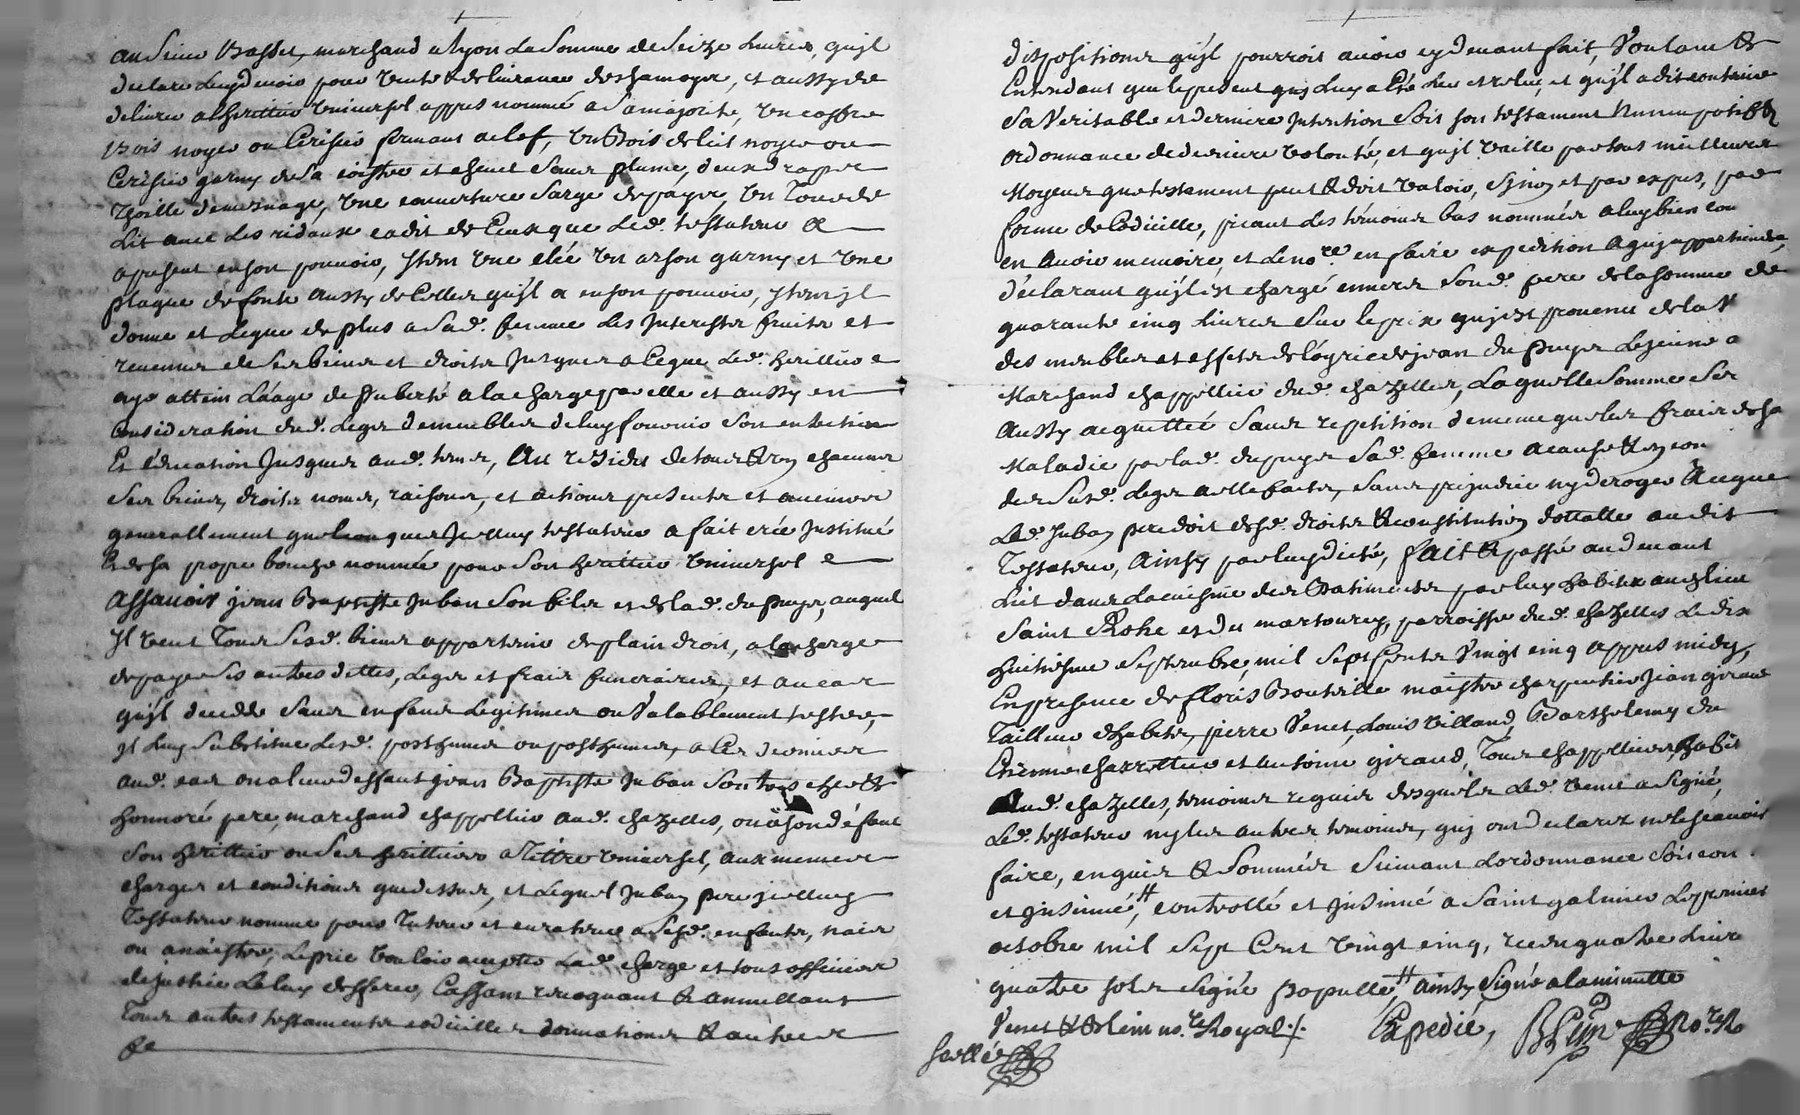 au Sieur Basset, marchand a lyon La Somme de Seize Livres, qu'jl
declare Luy devoir pour vente & delivrance de chamoye, et aussy de
delivrer a l'heritier vniversel appres nommé a Sa majorité, vn coffre
Bois noyer ou Cerisier fermant a clef, vn Bois de lit noyer ou
Cerisier garny de Sa coistre et chevet Sans plume, deux drapts
thoille de mesnage, vne couverture Sarge de pays, vn Tour de
Lit avec Les ridaux cadit de Ceux que Led. testateur a
a present en son pouvoir, jtem vne vn arson garny et vne
plaque de fonte aussy de Celles qu'jl a en son pouvoir, jtem jl
donne et Legue de plus a Sad. femme Les Interests fruits et
revenus de Ses biens et droits Jusques a Ceque Led. heritier
aye attein L'áage de Puberté a la charge par elle et aussy en
Consideration dud. Legs de meubles de luy fournir Son entretien
Et Education Jusques aud. tems, Au residu de tous & vns chacuns
Ses biens, droits noms, raisons, et actions presents et avenirs
generallement quelconques Jcelluy testateur a fait créé Justitué
& de Sa propre bouche nommé pour Son heritier vniversel
Assavoir jean Baptiste Juban Son fils et de lad. du Puys, auquel
Jl veut Tous Sesd. biens appartenir de plain droit, a la charge
de payer Ses autres dettes, Legs et frais funeraires, et au cas
qu'jl decede Sans enfans Legitimes ou Valablement tester,
jl Luy Substitue Lesd. posthumes ou posthumes, a Ces derniers
aud. cas ou a leur deffaut jean Baptiste Juban Son tres cher &
honnoré pere, marchand chappellier aud. chazelles, ou á Son défaut
Son heritier ou Ses heritiers a tittre vniversel, aux mesmes
charges et conditions que dessus, et Lequel Juban pere jcelluy
Testateur nomme pour tuteur et curateur a Sesd. enfants, nais
ou a naistre, Le prie vouloir accepter Lad. charge et tous officiers
de justice La luy defferer, Cassant revoquant & annullant
Tous autres testaments codicilles donnations & autres
dispositions qu'jl pourroit avoir cy devant fait, Voulant &
Entendant que le present quj Luy a Eté Leu et releu, et qu'jl a dit contenir
Sa Veritable et derniere Jntention Soit Son testament Nuncupatif &
ordonnance de derniere volonté, et qu'jl vaille par tous meilleurs
Moyens que testament peut & doit valoir, Sinon et par exprés, par
forme de Codicille, priant Les témoins bas nommés a luy bien con
en Avoir memoire, et Le no.re en faire expedition A quj appartiendra,
déclarant qu'jl Est chargé envers Sond. pere de la Somme de
quarante cinq Livres Sur le prix quj est provenu de la V
des meubles et effets de jean du Puys Le jeune
Marchand chappellier dud. chazelles, Laquelle Somme Ser
Aussy acquittée Sans repetition de meme que les frais de Sa
Maladie par lad. du puys Sad. femme a cause & en con
des Susd. Legs a elle faits, Sans prejudice ny deroger A ceque
Led. Juban pere doit de Sd. droits & Constitution dottalle audit
Testateur, Ainsy par luy dicté, fait & passé au devant
Lit dans La cuisine des Batiments par luy habités au
Saint Roche et du martouret, parroisse dud. chazelles Le dix
huitiesme Septembre, mil Sept Cents Vingt cinq appres midy,
En presence de floris Bouteille maistre charpentier Jean giraud
Tailleur d'habits, pierre Venet, Louis villand, Barthelemy du
Etienne charrettier et antoine giraud, Tous chappelliers, habit
Aud. chazelles, temoins requis desquels Led. venet a Signé,
Led. testateur ny les autres temoins, quj ont declarez ne le Scavoir
faire, enquis & Sommés Suivant L'ordonnance Soit con
et jnsinué, # controllé et jnsinué a Saint galmier Le premier
octobre mil Sept Cent vingt cinq, receu quatre Livre
quatre Sols Signé papulle, # ainsy Signé a la minutte
Venet & no.re Royal ./.
Expedié,
Scellé